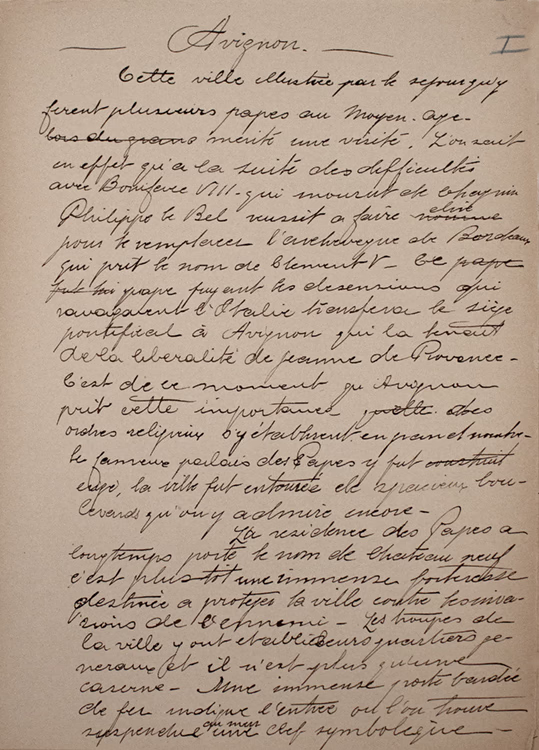 Avignon.
I
Cette ville illustrée par le sejour qu'y
firent plusieurs papes au Moyen-age
lors du grand mérite une visite. L'on sait
en effet qu'a la suite des difficultés
avec Boniface VIII - qui mourut de chagrin
Philippe le Bel reussit a faire nommé élire
pour le remplacer l'archeveque de Bordeaux
qui prit le nom de Clement V - Ce pape
fut lui pape fuyant les dissensions qui
ravagaient l'Italie transfera le siège
pontifical à Avignon qui la tenait
de la liberalité de Jeanne de Provence -
C'est de ce moment qu'Avignon
prit cette importance des
ordres religieux s'y établirent en grand nombre
le fameux palais des Papes y fut construit
erigé, la ville fut entourée de spacieux bou-
levards qu'on y admire encore -
La residence des Papes a
longtemps porté le nom de Chateau neuf
c'est plustôt une immense forteresse
destinée a proteger la ville contre les inva-
sions de l'ennemi - Les troupes de
la ville y ont etabli leurs quartiers ge-
neraux et il n'est plus qu'une
caserne - Une immense porte bardée
de fer indique l'entrée où l'on trouve
suspendue au mur une clef symbolique -